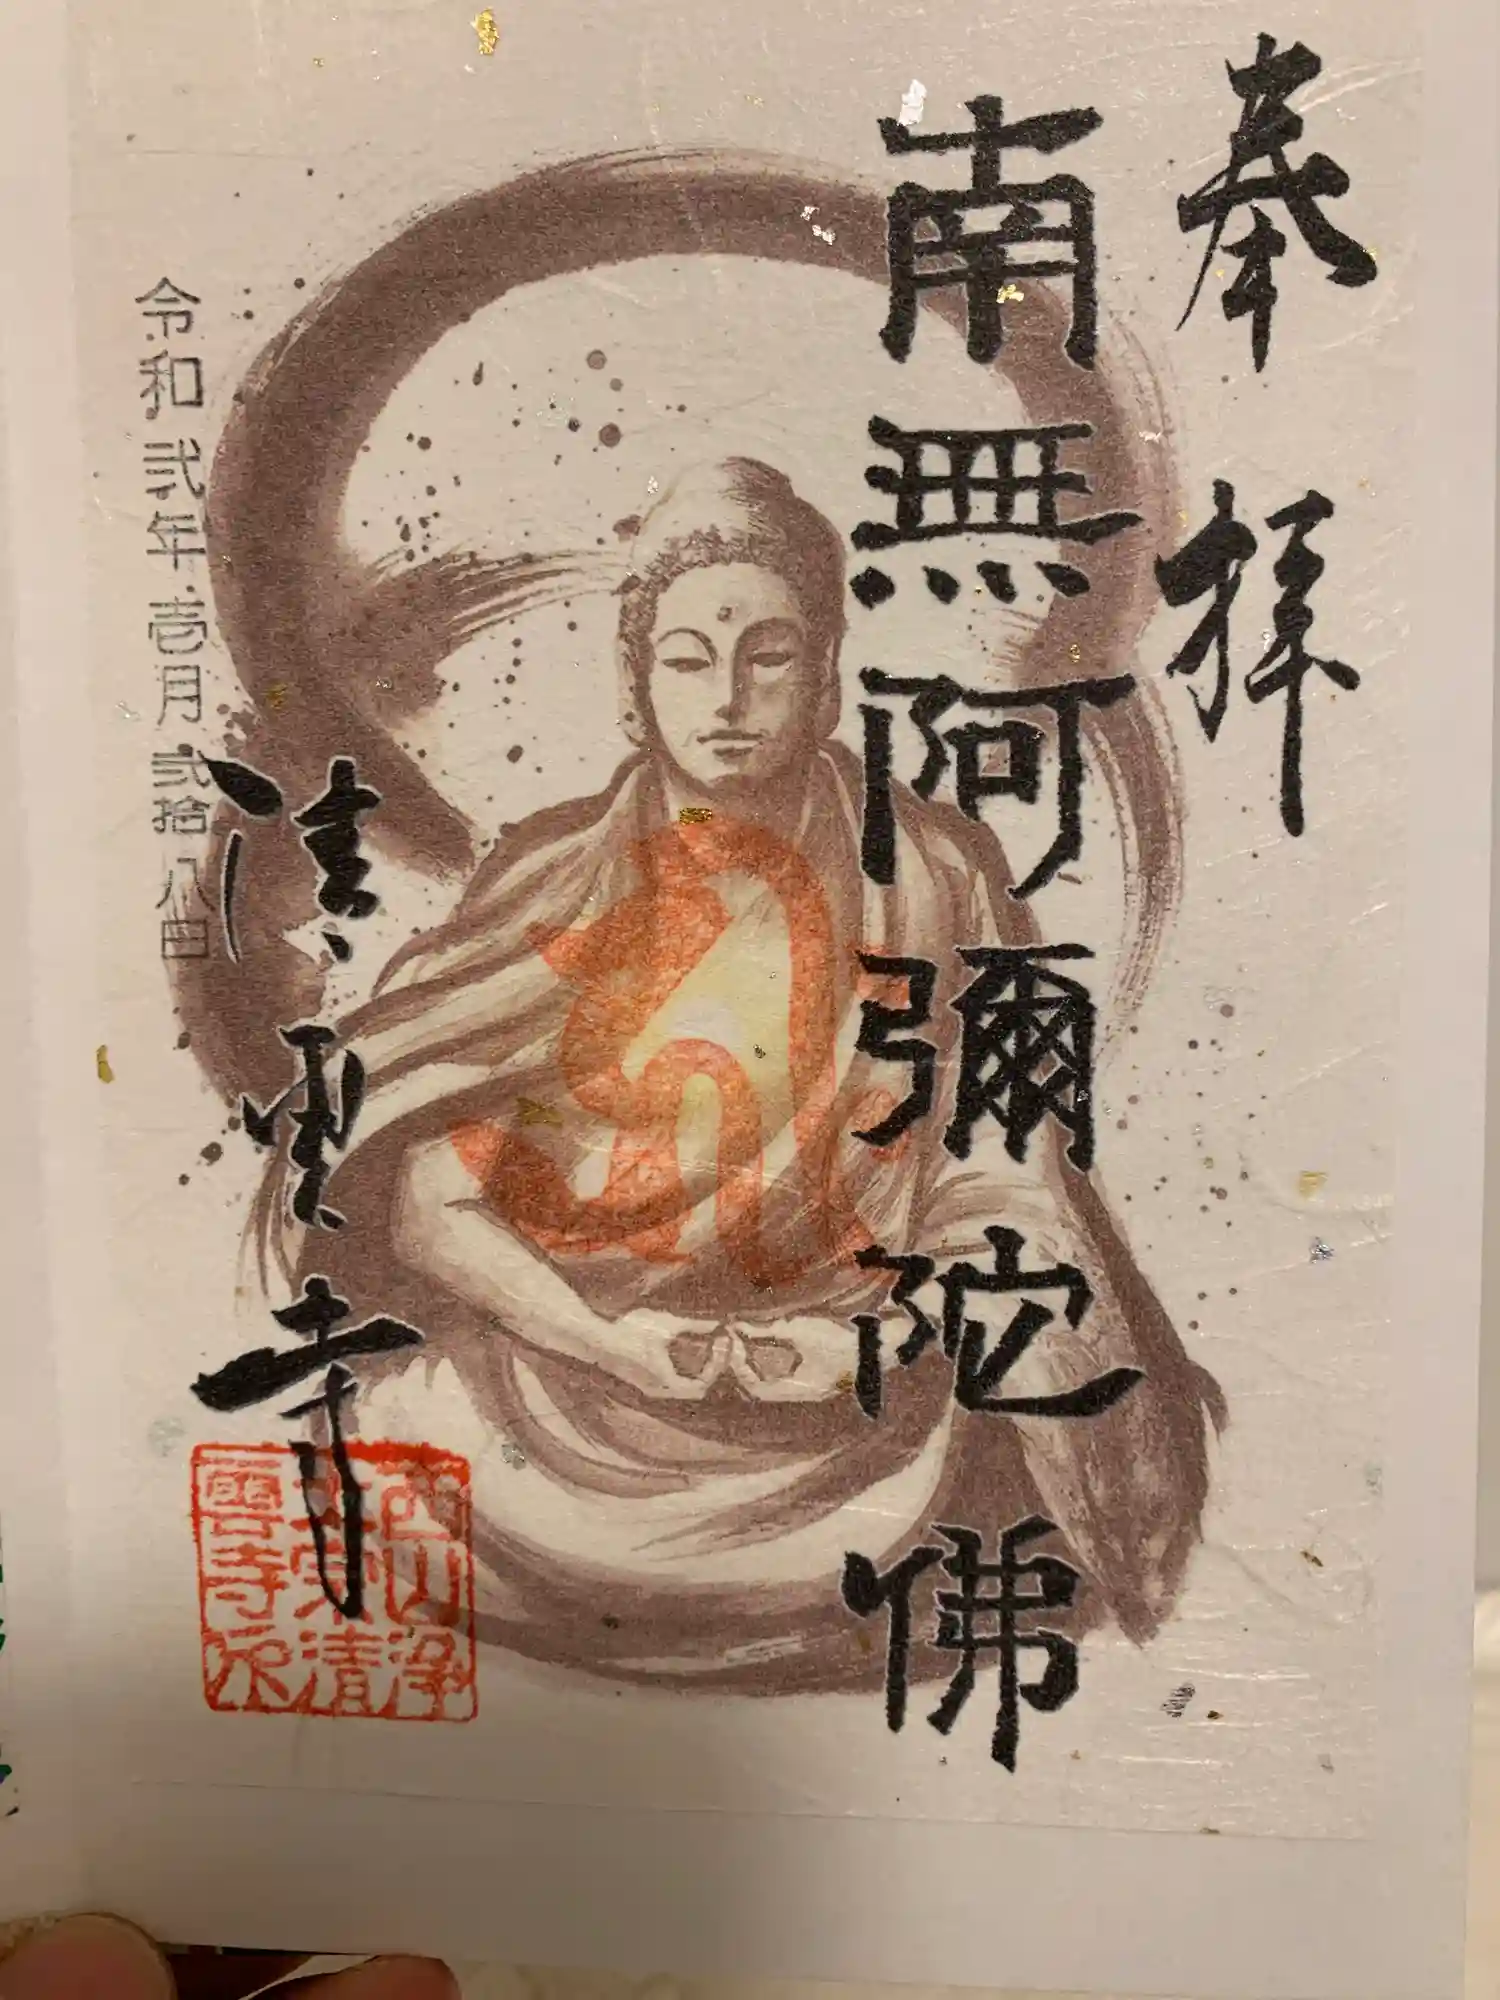 奉拝
南無阿彌陀佛
清雲寺
令和弐年壱月弐拾八日
西山浄
土宗清
雲寺印